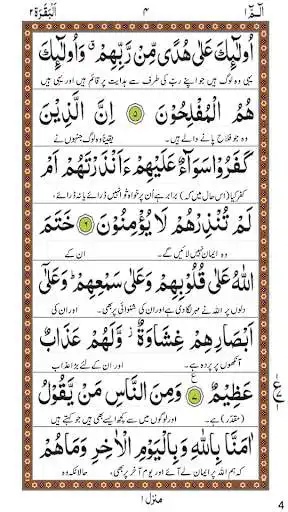 الٓمّٓ ١ ۴ اَلْبَقَرَة ٢
اُولٰٓئِكَ عَلٰى هُدًى مِّنْ رَّبِّهِمْ ۗ وَاُولٰٓئِكَ
یہی وہ لوگ ہیں جو اپنے رب کی طرف سے ہدایت پر قائم ہیں اور یہی ہیں
هُمُ الْمُفْلِحُوْنَ ۵ اِنَّ الَّذِيْنَ
وہ جو فلاح پانے والے ہیں۔ یقیناً وہ لوگ جنہوں نے
كَفَرُوْا سَوَآءٌ عَلَيْهِمْ ءَاَنْذَرْتَهُمْ اَمْ
کفر کیا (اس حال میں کہ) برابر ہے اُن پر خواہ تو انہیں ڈرائے یا نہ ڈرائے،
لَمْ تُنْذِرْهُمْ لَا يُؤْمِنُوْنَ ۶ خَتَمَ
وہ ایمان نہیں لائیں گے۔ ان کے
اللّٰهُ عَلٰى قُلُوْبِهِمْ وَعَلٰى سَمْعِهِمْ ۗ وَعَلٰٓى
دلوں پر اللہ نے مہر لگا دی ہے اور ان کی شنوائی پر بھی۔ اور ان کی
اَبْصَارِهِمْ غِشَاوَةٌ ۫ وَّلَهُمْ عَذَابٌ
آنکھوں پر پردہ ہے۔ اور ان کے لئے بڑا عذاب
عَظِيْمٌ ۷ وَمِنَ النَّاسِ مَنْ يَّقُوْلُ
(مقدر) ہے۔ اور لوگوں میں سے کچھ ایسے بھی ہیں جو کہتے ہیں
اٰمَنَّا بِاللّٰهِ وَبِالْيَوْمِ الْاٰخِرِ وَمَا هُمْ
کہ ہم اللہ پر ایمان لے آئے اور یوم آخر پر بھی، حالانکہ وہ
منزل ١
4